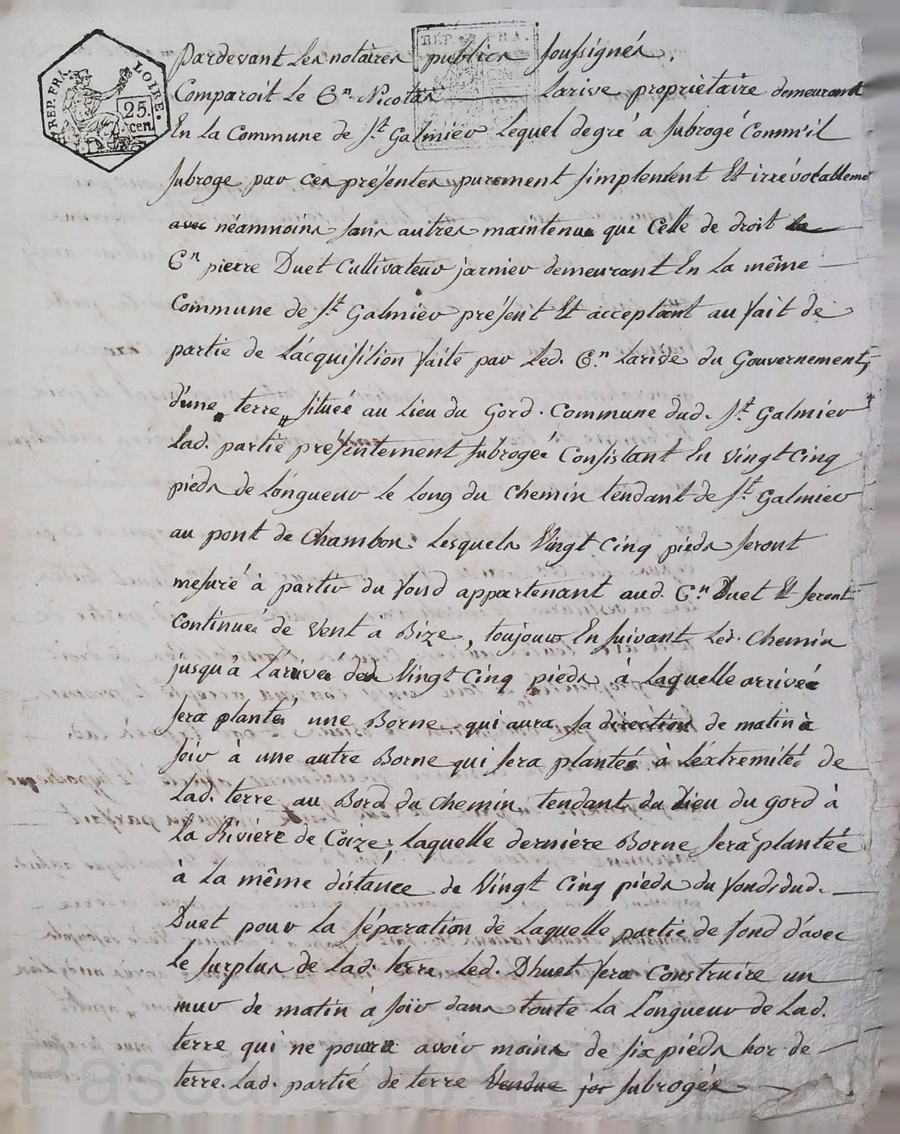 REP. FRA. LOIRE.
25. cen.
REP. FRA.
Pardevant Les notaires publics soussignés,
Comparoit Le Cn. Nicolas Larive propriétaire demeurant
En La Commune de St. Galmier Lequel degré a subrogé Comm'il
subroge par ces présentes purement simplement Et irrévocableme
avec néamnoins sans autres maintenue que Celle de droit Le
Cn pierre Duet Cultivateur jarnier demeurant En La même
Commune de St Galmier présent Et acceptant au fait de
partie de L'acquisition faite par Led. Cn. Larive du Gouvernement,
d'une terre située au Lieu du Gord. Commune dud. St. Galmier
Lad. partie présentement subrogée Consistant En vingt Cinq
pieds de Longueur Le Long du Chemin tendant de St. Galmier
au pont de Chambon: Lesquels Vingt Cinq pieds seront
mesuré à partir du fond appartenant aud. Cn. Duet Et seront
Continués de Vent à Bize, toujour En suivant Led. Chemin
jusqu'à L'arivée des Vingt Cinq pieds à Laquelle arrivée
sera plantés une Borne qui aura sa direction de matin à
soir à une autre Borne qui sera plantée à L'extremité de
Lad. terre au Bord du Chemin tendant du Lieu du gord à
La Riviere de Coize; laquelle derniere Borne sera plantée
à La même distance de Vingt Cinq pieds du fond dud.
Duet pour La séparation de Laquelle partie de fond d'avec
Le surplus de Lad. terre Led. Dhuet fera Construire un
mur de matin à soir dans toute La Longueur de Lad.
terre qui ne pourra avoir moins de six pieds hor de
terre. Lad. partié de terre Vendue subrogée